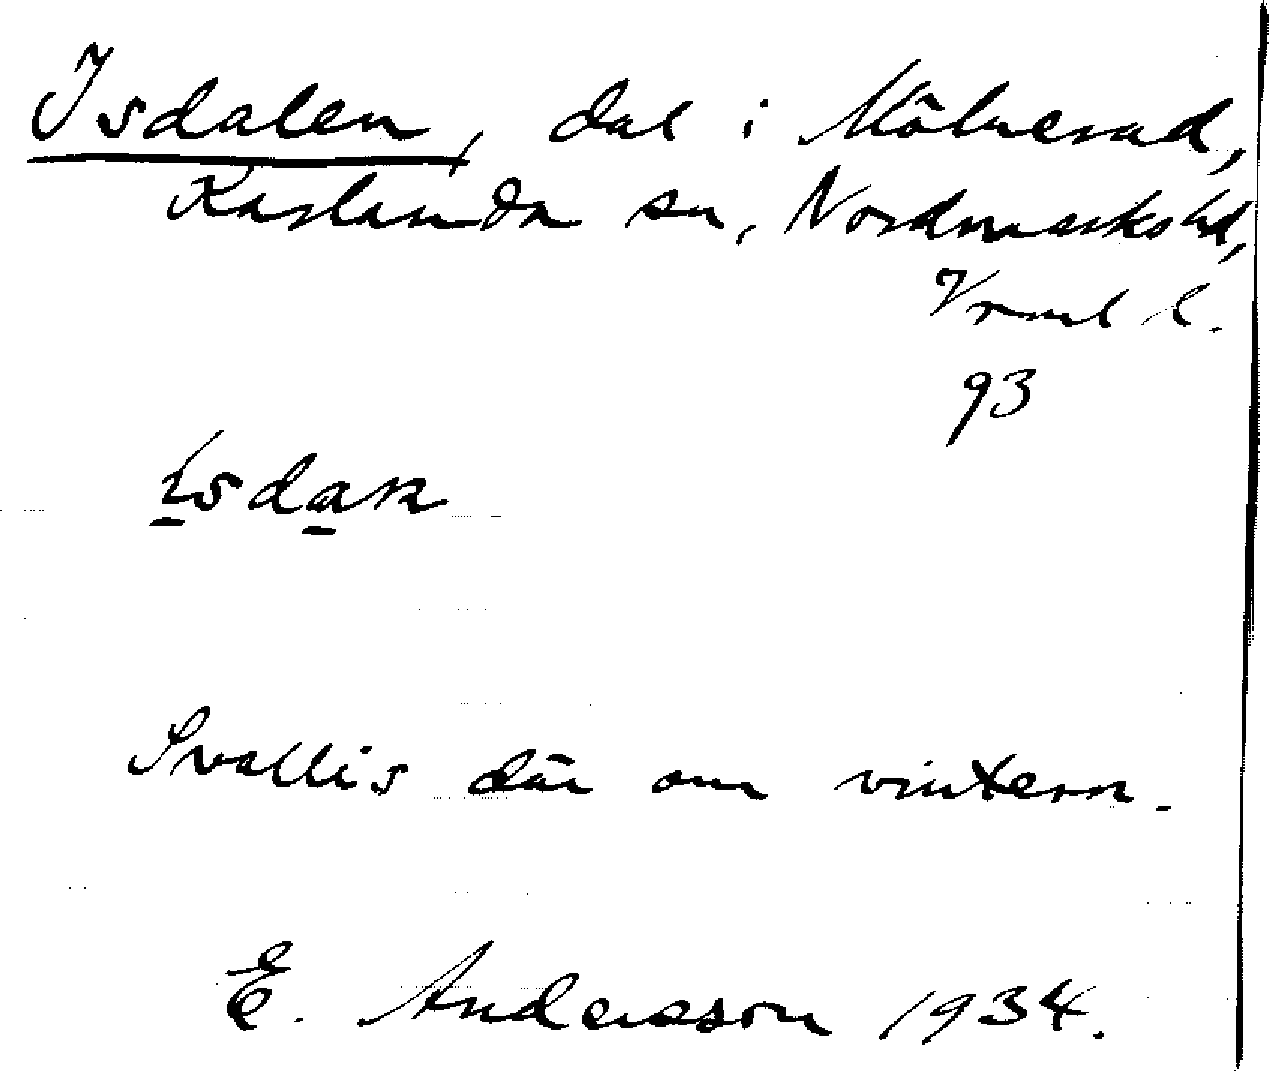 Isdalen, dal i Mölnerud,
Karlanda sn, Nordmarks hd,
Vrml l.
93
Isdaɴ
Svallis där om vintern.
E. Andersson 1934.